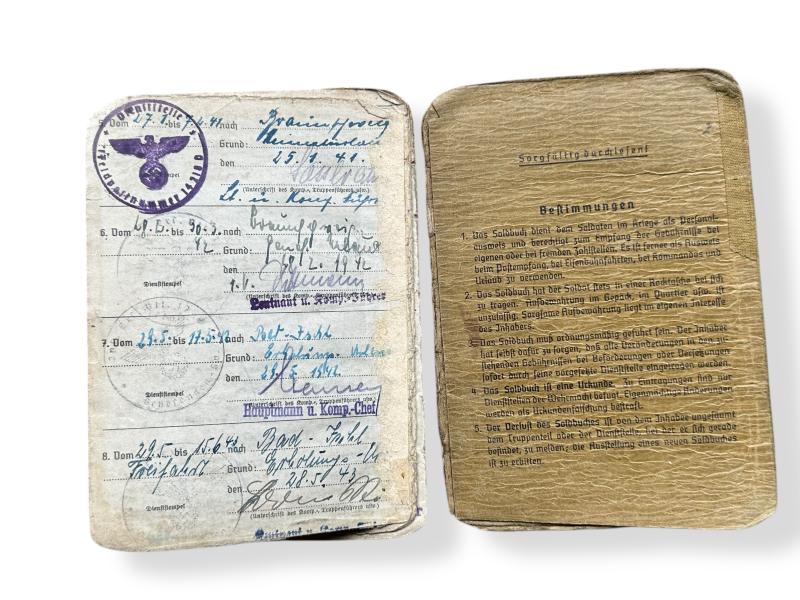 Dienststelle
Feldpostnummer
Vom 27.1. bis 7.2.41 nach
Grund:
den 25.1.41.
(Unterschrift des Komp.-, Truppenführers usw.)
Lt. u. Komp.
6. Vom bis nach
42 Grund:
den 1942
Dienststempel
Leutnant u. Komp.-Führer
7. Vom 29.5. bis nach
Grund:
den 1942
Dienststempel
Hauptmann u. Komp.-Chef
8. Vom 29.5 bis 15.6.43 nach Bad-
Freifahrt Grund: Erholungs-
den 28.5.43
Dienststempel
(Unterschrift des Komp.-, Truppenführers usw.)
Sorgfältig durchlesen!
Bestimmungen
1. Das Soldbuch dient dem Soldaten im Kriege als Personal-
ausweis und berechtigt zum Empfang der Gebührnisse bei
eigenen oder bei fremden Zahlstellen. Es ist ferner als Ausweis
beim Postempfang, bei Eisenbahnfahrten, bei Kommandos und
Urlaub zu verwenden.
2. Das Soldbuch hat der Soldat stets in einer Rocktasche bei sich
zu tragen. Aufbewahrung im Gepäck, im Quartier usw. ist
unzulässig. Sorgsame Aufbewahrung liegt im eigenen Interesse
des Inhabers.
3. Das Soldbuch muß ordnungsmäßig geführt sein. Der Inhaber
hat selbst dafür zu sorgen, daß alle Veränderungen in den zu-
stehenden Gebührnissen bei Beförderungen oder Versetzungen
sofort durch seine vorgesetzte Dienststelle eingetragen werden.
4. Das Soldbuch ist eine Urkunde. Zu Eintragungen sind nur
Dienststellen der Wehrmacht befugt. Eigenmächtige Änderungen
werden als Urkundenfälschung bestraft.
5. Der Verlust des Soldbuches ist von dem Inhaber ungesäumt
dem Truppenteil oder der Dienststelle, bei der er sich gerade
befindet, zu melden; die Ausstellung eines neuen Soldbuches
ist zu erbitten.